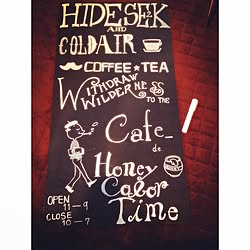 HIDESEK
AND
COLDAIR
COFFEE★TEA
WITHDRAW
WILDERNESS TO THE
Cafe
de
Honey
Time
OPEN
11-9
CLOSE
10-7